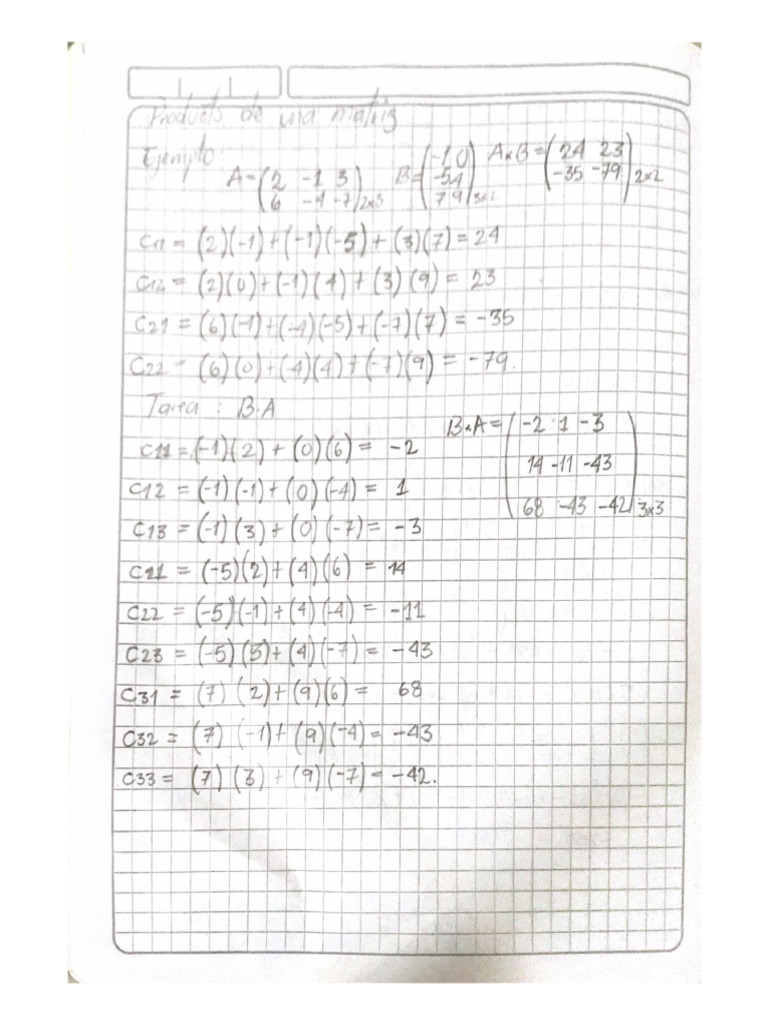 Producto de una matriz
Ejemplo:
A = (2 -1 3
6 -4 -7)2x3
B = (-1 0
-5 4
7 9)3x2
A x B = (24 23
-35 -79)2x2
C11 = (2)(-1)+(-1)(-5)+(3)(7) = 24
C12 = (2)(0)+(-1)(4)+(3)(9) = 23
C21 = (6)(-1)+(-4)(-5)+(-7)(7) = -35
C22 = (6)(0)+(-4)(4)+(-7)(9) = -79.
Tarea : B.A
B x A = (-2 1 -3
14 -11 -43
68 -43 -42)3x3
C11 = (-1)(2) + (0)(6) = -2
C12 = (-1)(-1) + (0)(-4) = 1
C13 = (-1)(3) + (0)(-7) = -3
C21 = (-5)(2)+(4)(6) = 14
C22 = (-5)(-1)+(4)(-4) = -11
C23 = (-5)(3)+(4)(-7) = -43
C31 = (7)(2)+(9)(6) = 68
C32 = (7)(-1)+(9)(-4) = -43
C33 = (7)(3)+(9)(-7) = -42.